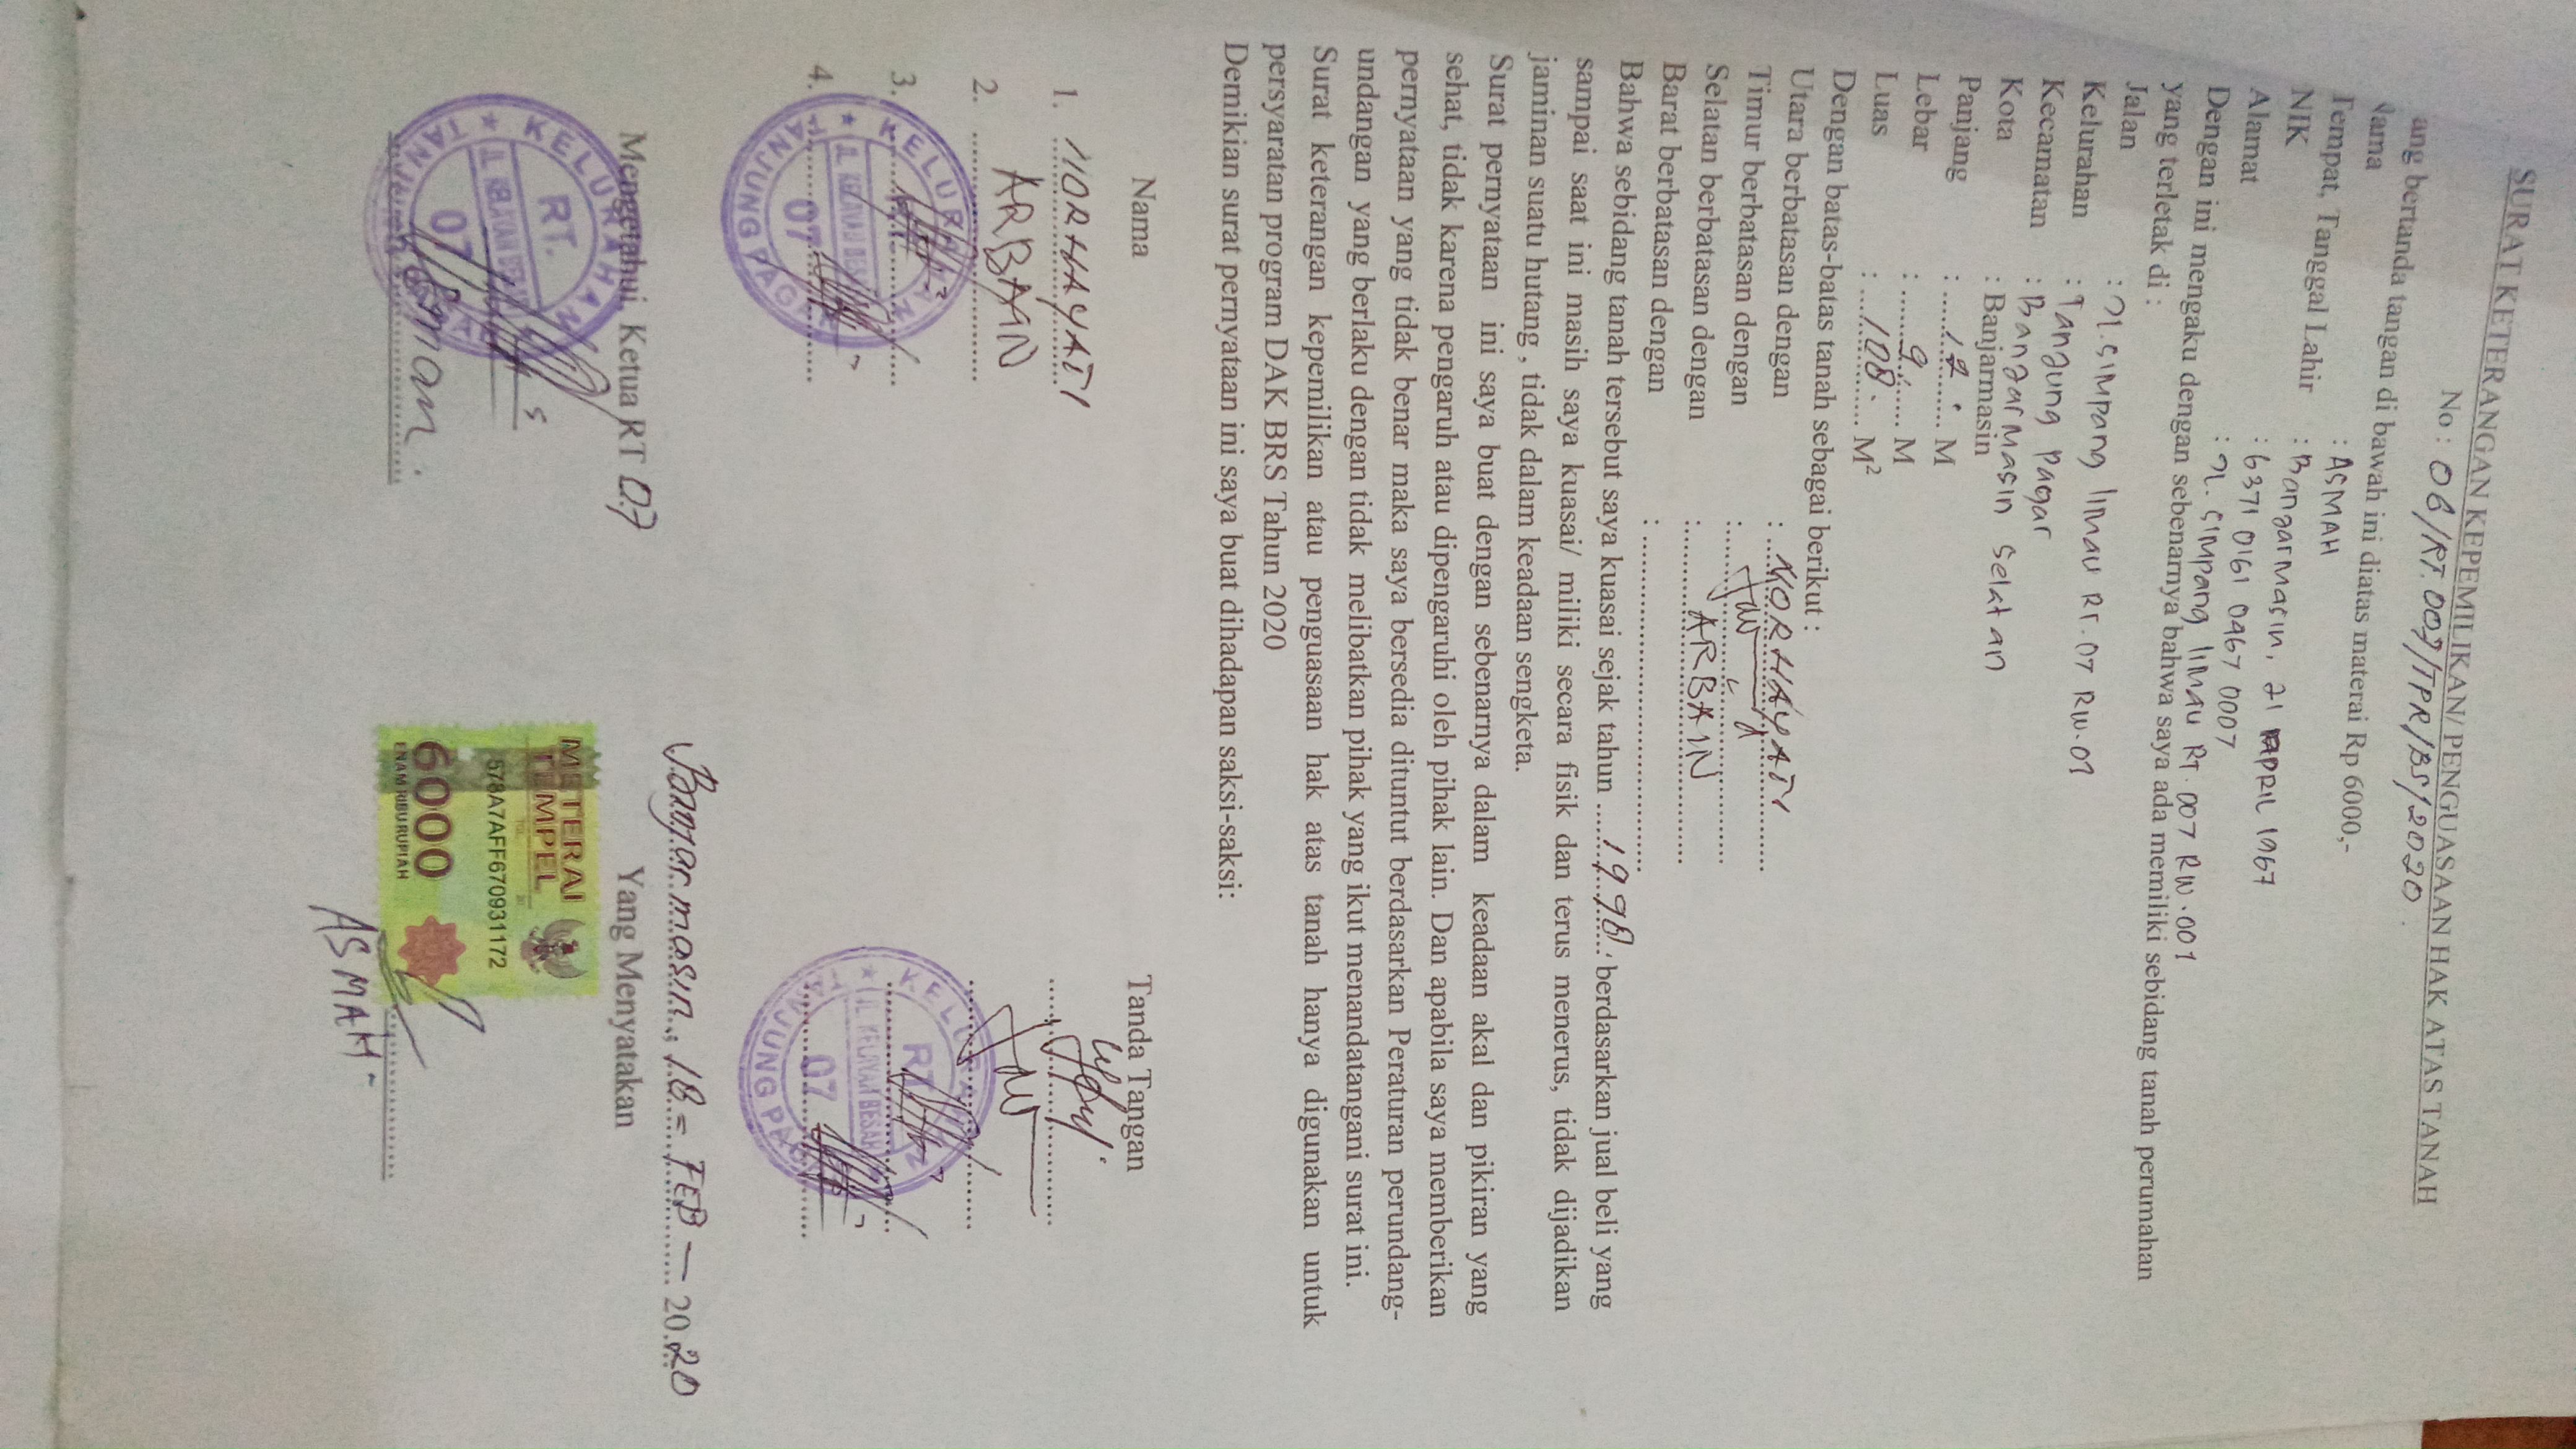 SURAT KETERANGAN KEPEMILIKAN/ PENGUASAAN HAK ATAS TANAH
No : 06/RT.007/TPR/BS/2020.
ang bertanda tangan di bawah ini diatas materai Rp 6000,-
Nama : ASMAH
Tempat, Tanggal Lahir : Banjarmasin, 21 APRIL 1967
NIK : 6371 0161 0467 0007
Alamat : Jl. Simpang limau RT.007 RW.001
Dengan ini mengaku dengan sebenarnya bahwa saya ada memiliki sebidang tanah perumahan
yang terletak di :
Jalan : Jl. Simpang limau RT.07 RW.01
Kelurahan : Tanjung Pagar
Kecamatan : Banjarmasin Selatan
Kota : Banjarmasin
Panjang : 12 M
Lebar : 9 M
Luas : 108 M²
Dengan batas-batas tanah sebagai berikut :
Utara berbatasan dengan : NORHAYATI
Timur berbatasan dengan :
Selatan berbatasan dengan : ARBAIN
Barat berbatasan dengan :
Bahwa sebidang tanah tersebut saya kuasai sejak tahun 1996 berdasarkan jual beli yang
sampai saat ini masih saya kuasai/ miliki secara fisik dan terus menerus, tidak dijadikan
jaminan suatu hutang , tidak dalam keadaan sengketa.
Surat pernyataan ini saya buat dengan sebenarnya dalam keadaan akal dan pikiran yang
sehat, tidak karena pengaruh atau dipengaruhi oleh pihak lain. Dan apabila saya memberikan
pernyataan yang tidak benar maka saya bersedia dituntut berdasarkan Peraturan perundang-
undangan yang berlaku dengan tidak melibatkan pihak yang ikut menandatangani surat ini.
Surat keterangan kepemilikan atau penguasaan hak atas tanah hanya digunakan untuk
persyaratan program DAK BRS Tahun 2020
Demikian surat pernyataan ini saya buat dihadapan saksi-saksi:
Nama Tanda Tangan
1. NORHAYATI
2. ARBAIN
3.
4.
KELURAHAN
RT.
JL KELAYAN BESAR
07
TANJUNG PAGAR
KELURAHAN
RT.
JL KELAYAN BESAR
07
TANJUNG PAGAR
Banjarmasin, 18 = FEB - 2020
Mengetahui, Ketua RT 07 Yang Menyatakan
KELURAHAN
RT.
JL KELAYAN BESAR
07
METERAI
TEMPEL
578A7AFF670931172
6000
ENAM RIBU RUPIAH
ASMAH